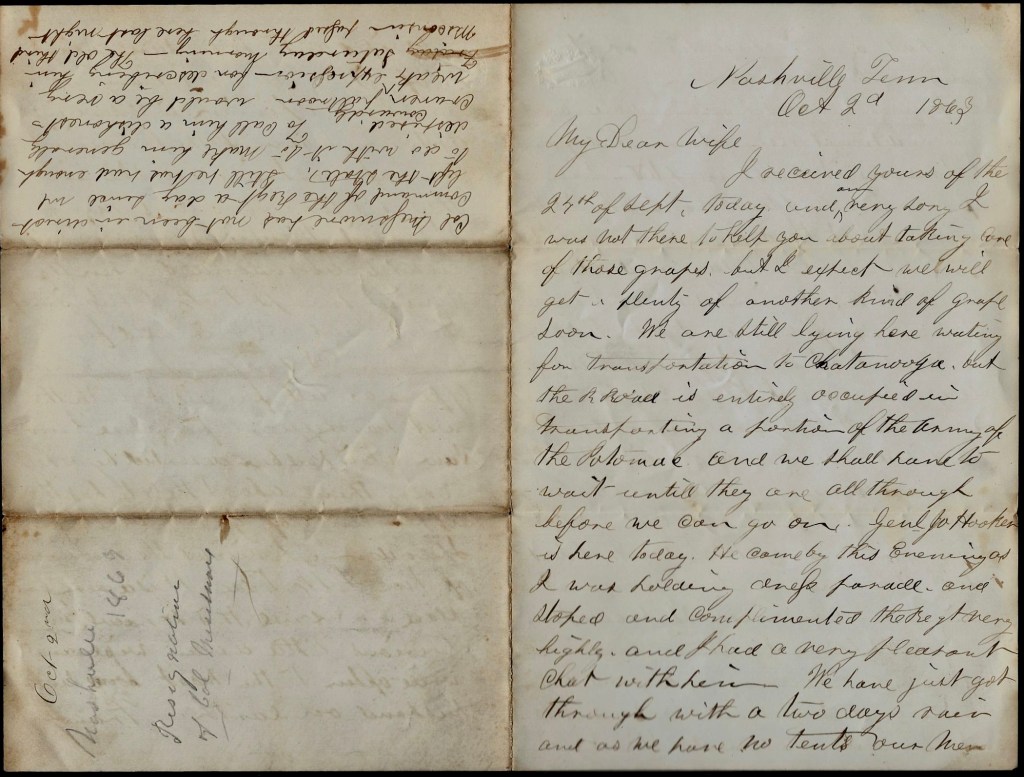 Nashville Tenn
Oct 2d 1863
My Dear Wife
I received yours of the
24th of Sept, today and am very sorry I
was not there to help you about taking care
of those grapes. but I expect we will
get a plenty of another kind of grape
soon. We are still lying here waiting
for transportation to Chatanooga. but
the R Road is entirely occupied in
transporting a portion of the Army of
the Potomac and we shall have to
wait until they are all through
before we can go on. Genl Jo Hooker
is here today. He come by this Evening as
I was holding dress parade. and
stoped and complimented the Regt very
highly. and I had a very pleasant
chat with him We have just got
through with a two days rain
and as we have no tents our men
Col Messmore has not been in
command of the Regt a day since we
left the State), still he has had enough
to do with it to make him generally
detested. To call him a dishonest
Craven, cowardly poltroon would be a very
weak expression for describing him
Friday Saturday morning – The old third
Wisconsin passed through here last night
Oct 2nd
Nashville 1863
Resignation
of Col Messmore